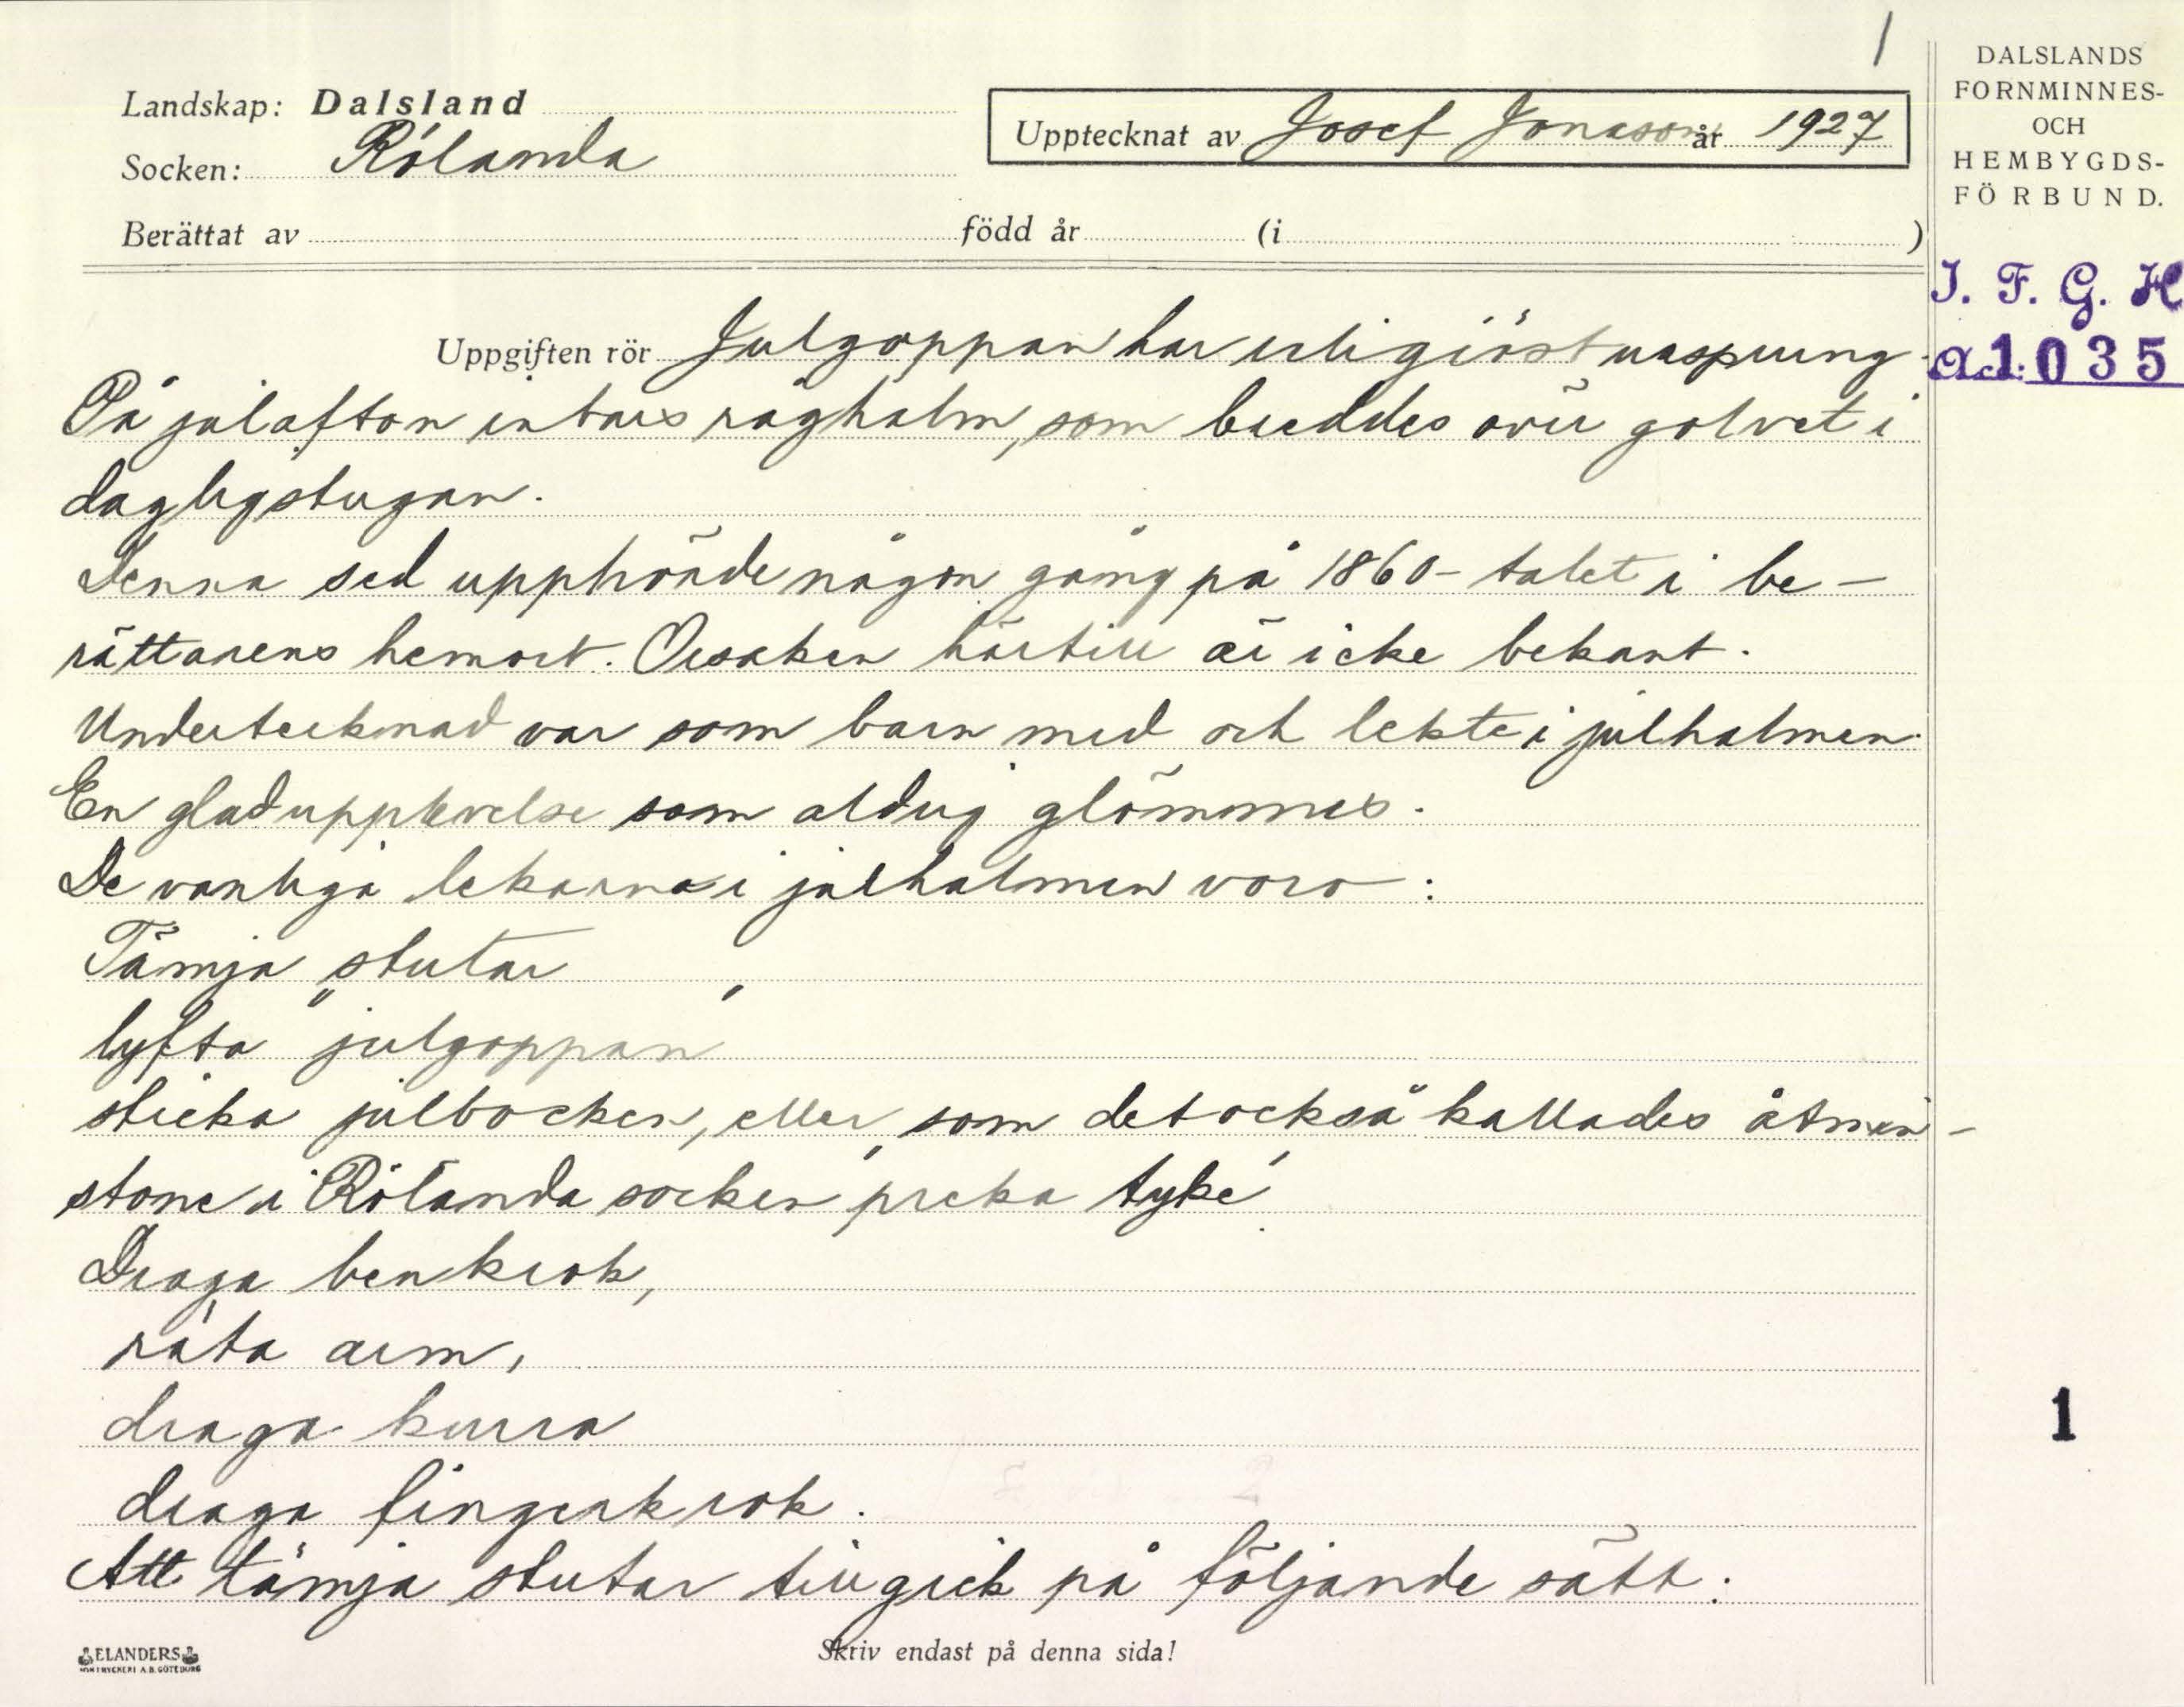 1
Landskap: Dalsland
Socken: Rölanda
Upptecknat av Josef Jonasson år 1927
Berättat av född år (i )
DALSLANDS
FORNMINNES-
OCH
HEMBYGDS-
FÖRBUND.
I. F. G. H
Acc. 1035
Uppgiften rör Julgoppan har religiöst ursprung.
På julafton intars råghalm, som breddes över golvet i
dagligstugan.
Denna sed upphörde någon gång på 1860-talet i be-
rättarens hemort. Orsaken härtill är icke bekant.
Undertecknad var som barn med och lekte i julhalmen.
En glad upplevelse som aldrig glömmes.
De vanliga lekarna i julhalmen voro:
Tämja stutar
lyfta "julgoppan"
sticka julbocken, eller som det också kallades åtmin-
stone i Rölanda socken "preka tyke"
Draga benkrok,
räta arm,
draga kurra
draga fingerkrok.
Att tämja stutar tillgick på följande sätt:
1
ELANDERS
BOKTRYCKERI A.B. GÖTEBORG
Skriv endast på denna sida!